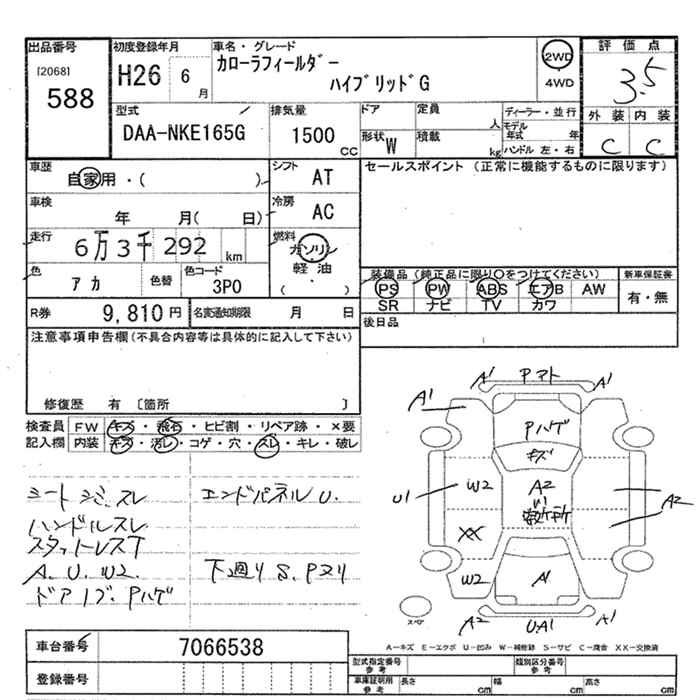 出品番号 初度登録年月 車名・グレード 評価点
[2068] 588 H26 6月 カローラフィールダー ハイブリッドG 2WD 4WD 3.5
外装 内装
C C
型式 排気量 ドア 定員 人 ディーラー・並行
DAA-NKE165G 1500 CC 形状 W 積載 kg モデル年式 年 ハンドル 左・右
車歴 自家用・( ) シフト AT セールスポイント(正常に機能するものに限ります)
車検 年 月( 日) 冷房 AC
走行 6万3千292 km 燃料 ガソリン 軽油 ( ・ )
色 アカ 色替 色コード 3P0 装備品(純正品に限り○をつけてください) 新車保証書
PS PW ABS エアB AW 有・無
SR ナビ TV カワ
R券 9,810円 名変通知期限 月 日 後日品
注意事項申告欄(不具合内容等は具体的に記入して下さい)
修復歴 有 [箇所 ]
検査員 FW キズ・飛石・ヒビ割・リペア跡・×要
記入欄 内装 キズ・汚レ・コゲ・穴・スレ・キレ・破レ
シートシミ、スレ エンドパネルU.
ハンドルスレ
スタットレスT
A. U. W2. 下廻りS、Pヌリ
ドアノブ、Pハゲ
A1 Pマト A1
A1
Pハゲ
キズ
U1 W2 A2 A2
U1
XX
W2 A1
スペア A2 U.A1 A1
A-キズ E-エクボ U-凹み W-補修跡 S-サビ C-腐食 XX-交換済
車台番号 7066538
登録番号
型式指定番号 参考 類別区分番号 参考
車庫証明用 参考 長さ cm 幅 cm 高さ cm